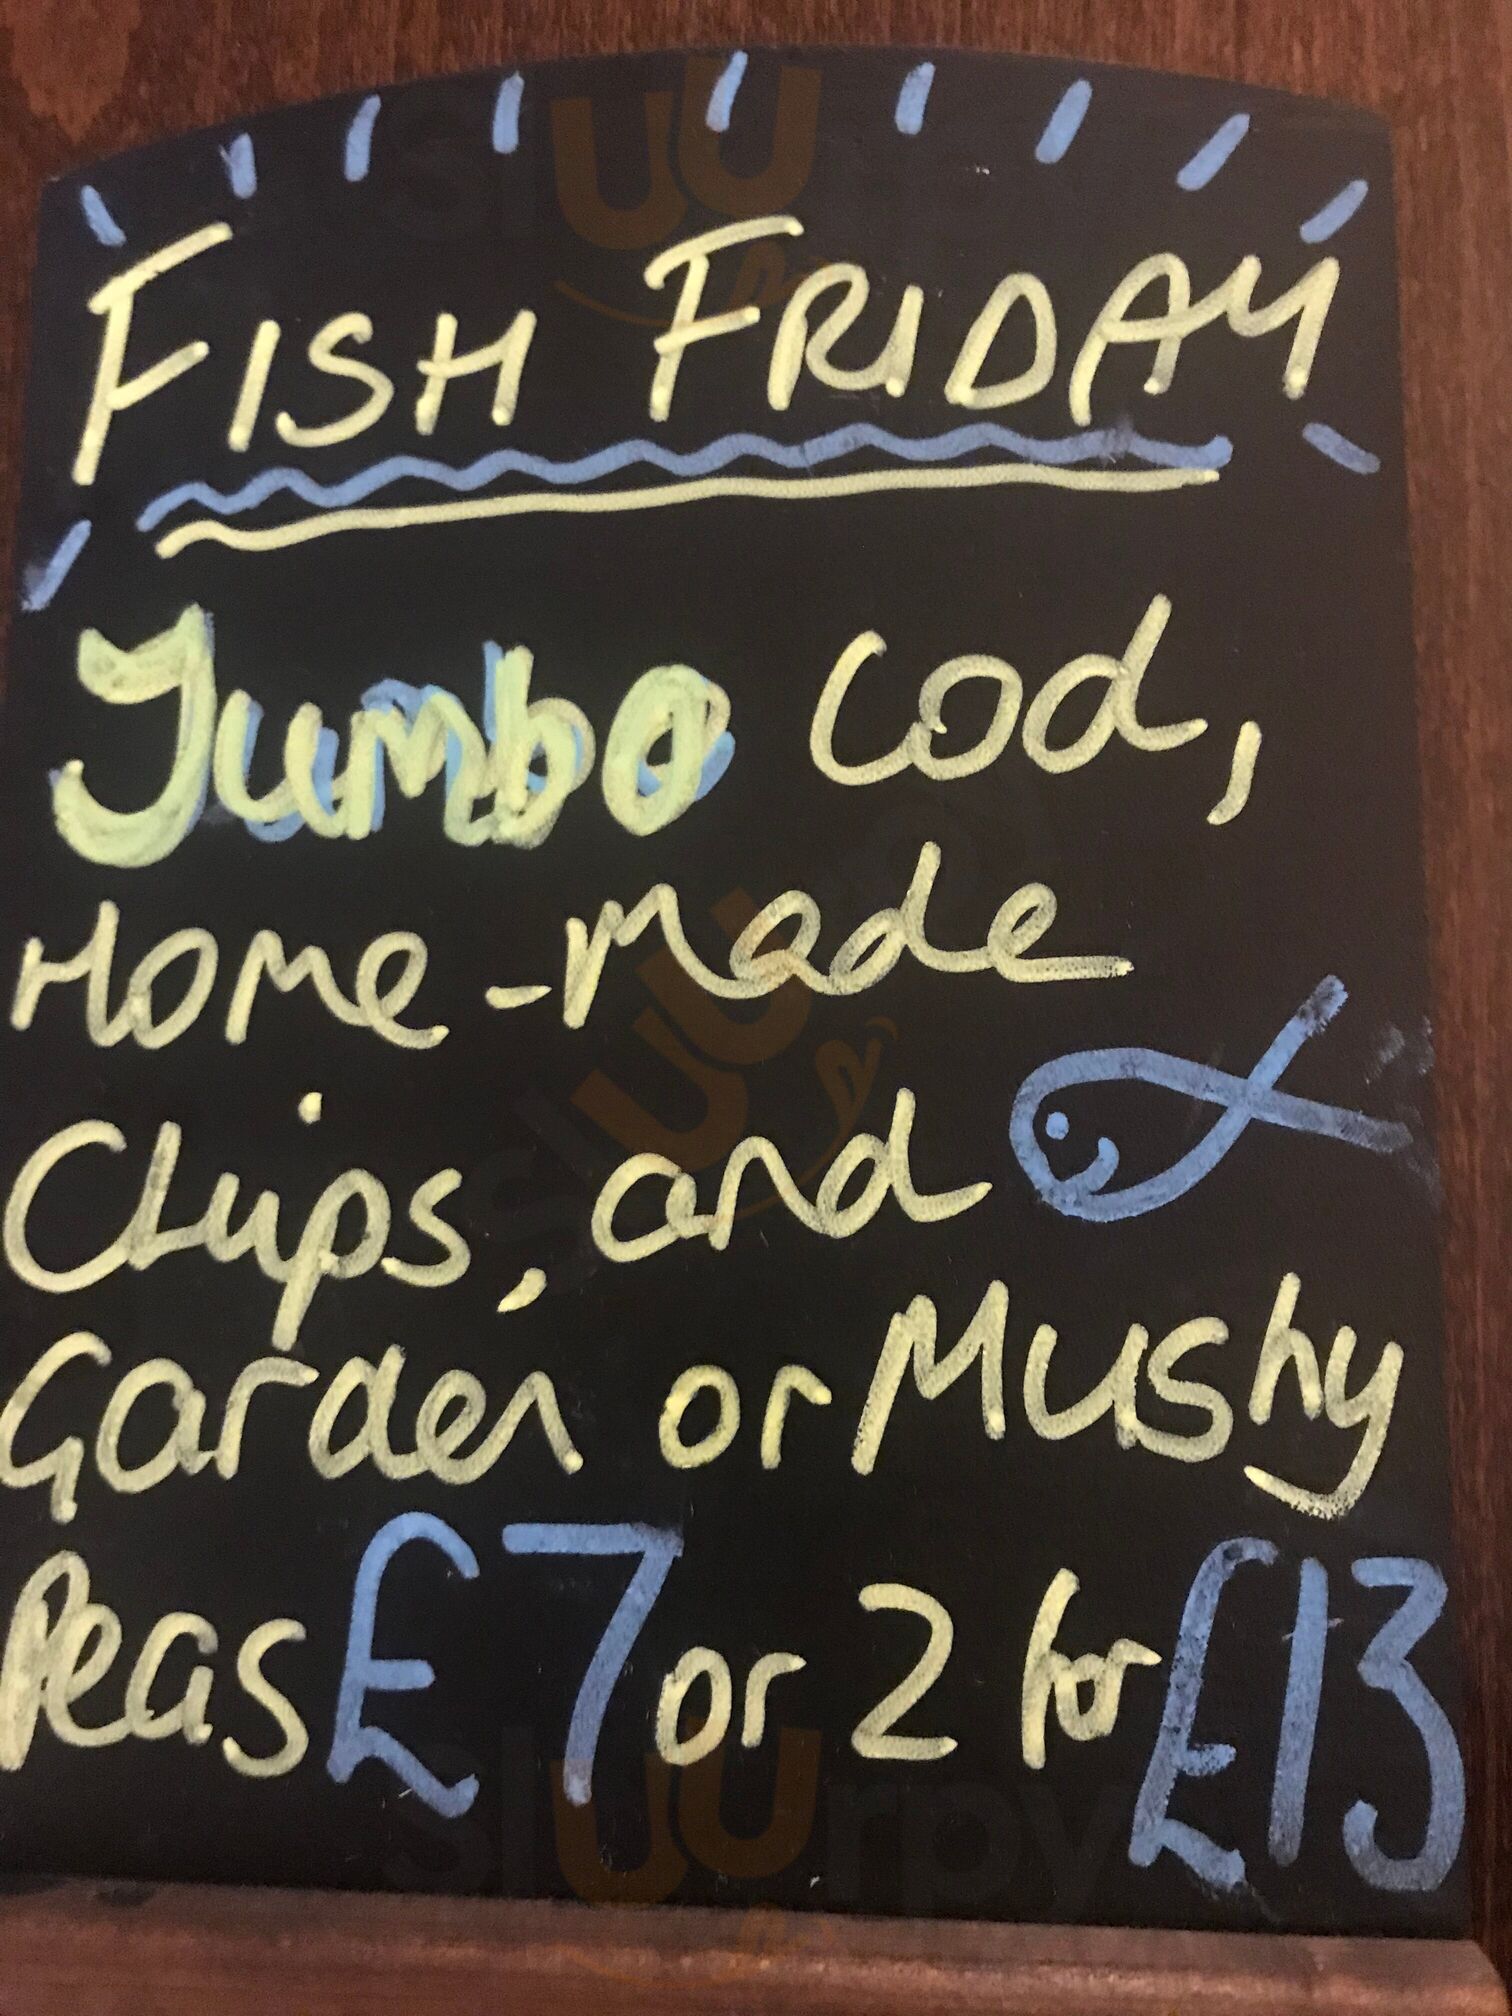 FISH FRIDAY
Jumbo Cod,
Home-Made
Chips, and
Garden or Mushy
Peas £7 or 2 for £13
sluurpy
sluurpy
sluurpy